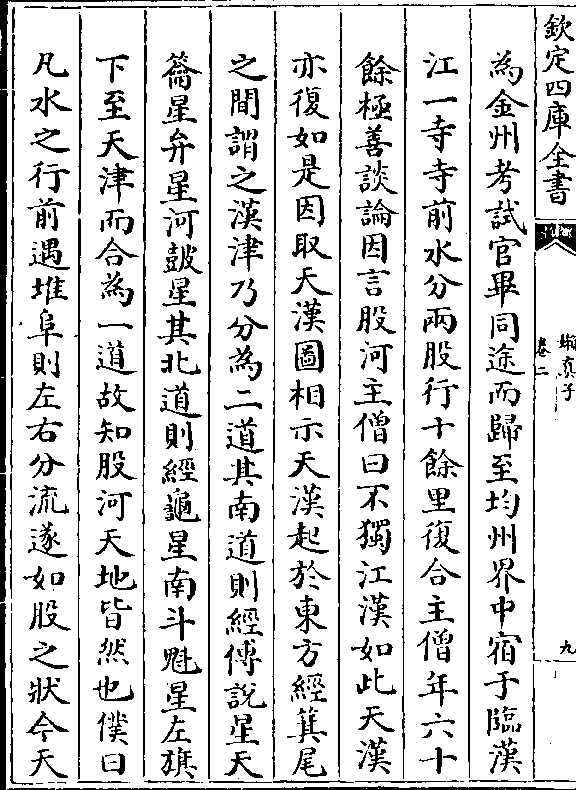 欽定四庫全書
嬾真子
卷二
九
為金州考試官畢同途而歸至均州界中宿于臨漢
江一寺寺前水分兩股行十餘里復合主僧年六十
餘極善談論因言股河主僧曰不獨江漢如此天漢
亦復如是因取天漢圖相示天漢起於東方經箕尾
之間謂之漢津乃分為二道其南道則經傅說星天
籥星弁星河鼓星其北道則經龜星南斗魁星左旗
下至天津而合為一道故知股河天地皆然也僕曰
凡水之行前遇堆阜則左右分流遂如股之狀今天